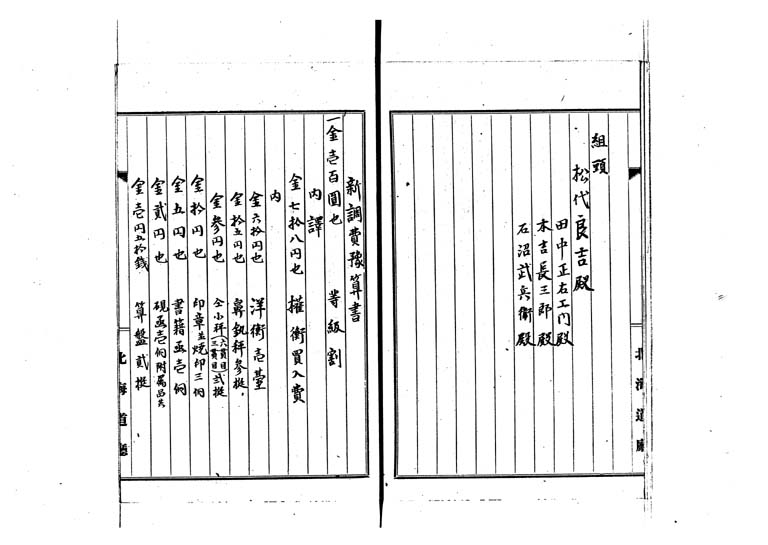 組頭
松代良吉殿
田中正右エ門殿
本吉長三郎殿
石沼武兵衛殿
北海道廳
新調費豫算書
一金壱百圓也 等級割
内譯
金七拾八円也 權衡買入費
内
金六拾円也 洋衡壱臺
金拾五円也 鼻釻秤参挺,
金参円也 仝小秤(六貫目三貫目)弐挺
金拾円也 印章並焼印三個
金五円也 書籍函壱個
金貳円也 硯函壱個附属品共
金壱円五拾錢 算盤貳挺
北海道廳